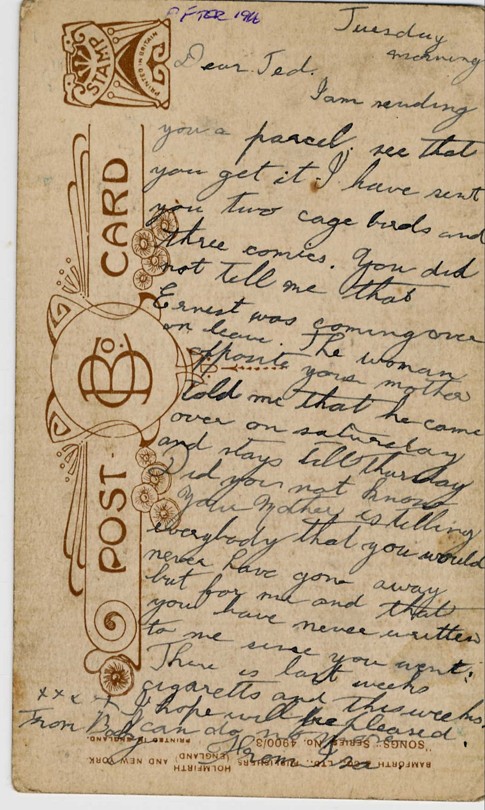 AFTER 1916
STAMP
PRINTED IN BRITAIN
Tuesday
morning
Dear Ted.
I am sending
you a parcel; see that
you get it. I have sent
you two cage birds and
three comics. You did
not tell me that
Ernest was coming over
on leave. The woman
opposite your mother
told me that he came
over on saturday
and stays till thursday
Did you not know
Your Mother is telling
everybody that you would
never have gone away
but for me and that
you have never written
to me since you went:
There is last weeks
cigaretts and this weeks.
I hope will be pleased
x x x x
From Bab
can do no more
POST CARD
B Co.
BAMFORTH & CO., LTD., PUBLISHERS, HOLMFIRTH (ENGLAND) AND NEW YORK
"SONGS" SERIES No. 4900/3
PRINTED IN ENGLAND.